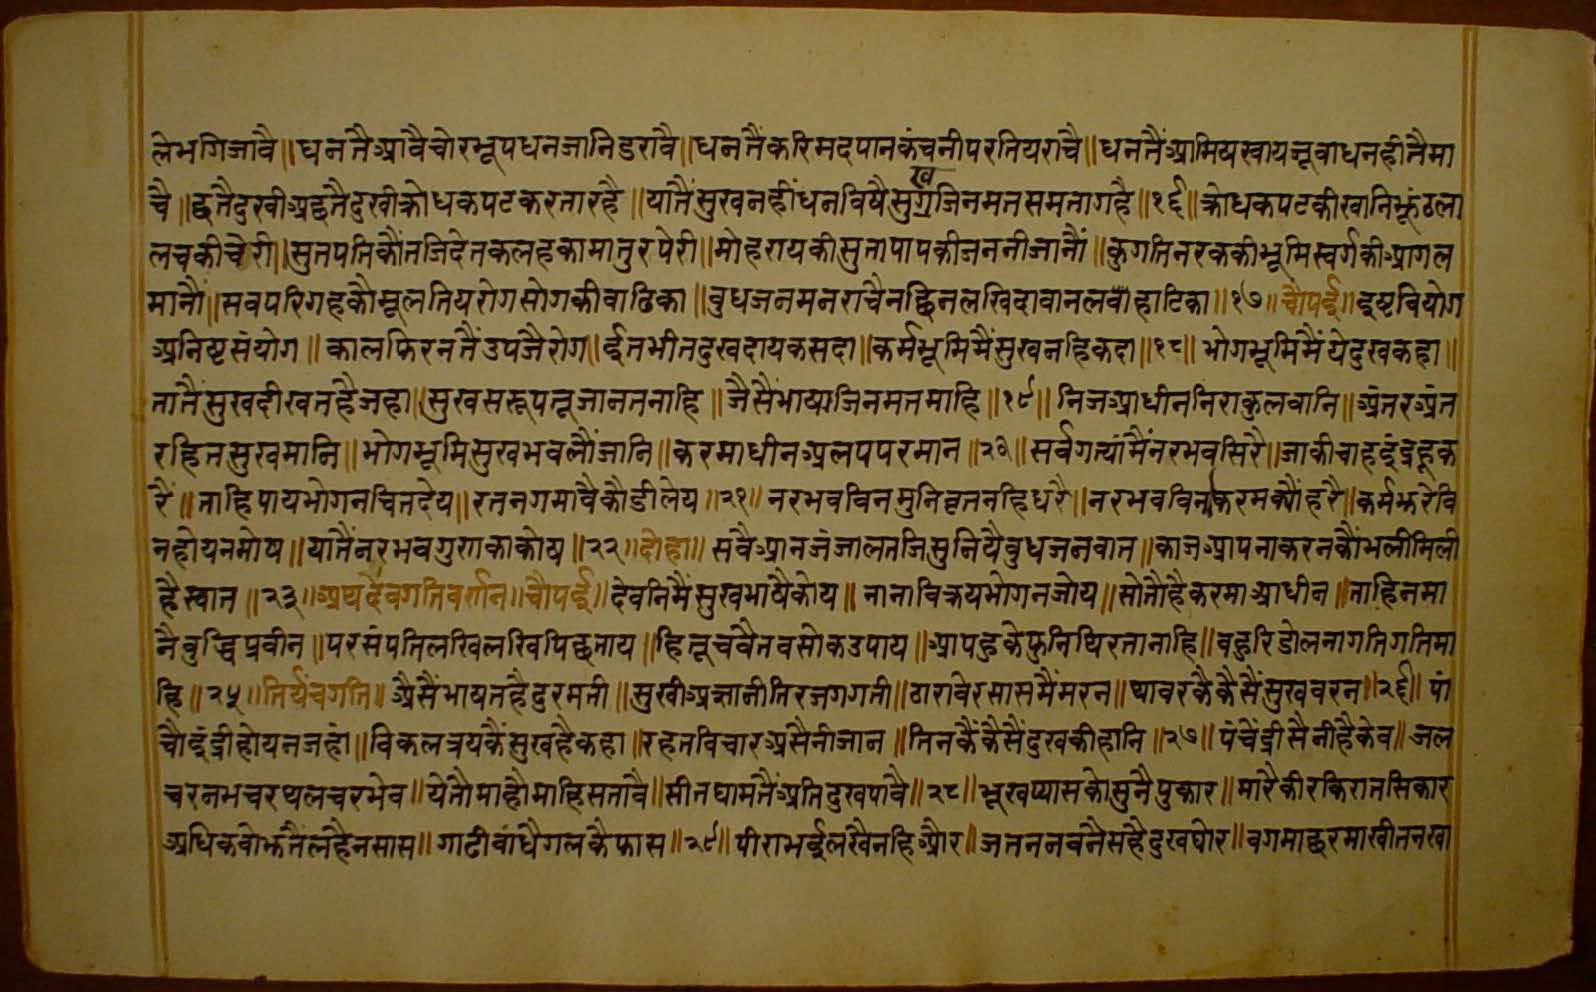 लेभगिजावै॥धनतैआवैचोरभूपधनजानिडरावै॥धनतैंकरिमदपानकंचनीपरतियराचै॥धनतैंआमियखायजूवाधनहीतैमा
चै॥छतैदुखीअछतैदुखीक्रोधकपटकरतारहै॥यातैंसुखनहींधनविषैसुखग्रजिनमतसमतागहै॥१६॥क्रोधकपटकीखानिझूंठला
लचकीचेरी॥सुतपतिकौंतजिदेतकलहकामातुरपेरी॥मोहरायकीसुतापापकीजननीजानौं॥कुगतिनरककीभूमिस्वर्गकीआगल
मानौं॥सवपरिगहकौमूलतियरोगसोगकीवाढिका॥वुधजनमनराचैनछिनलखिदावानलवौहाटिका॥१७॥चौपई॥इष्टवियोग
अनिष्टसंयोग॥कालफिरनतैंउपजैरोग॥ईतभीतदुखदायकसदा॥कर्मभूमिमैंसुखनहिकदा॥१८॥भोगभूमिमैंयेदुखकहा॥
तातैंसुखदीखतहैजहा॥सुखसरूपतूजानतनाहि॥जैसैंभाष्याजिनमतमाहि॥१९॥निजआधीननिराकुलवानि॥अंतरअंत
रहितसुखमानि॥भोगभूमिसुखभवलौंजानि॥करमाधीनअलपपरमान॥२०॥सर्वगत्यांमैंनरभवसिरै॥जाकीचाहइंद्रहूक
रैं॥ताहिपायभोगनचितदेय॥रतनगमावैकौडीलेय॥२१॥नरभवविनमुनिवृतनहिधरै॥नरभवविनकरमक्यौंहरै॥कर्मझरेवि
नहोयनमोष॥यातैंनरभवगुणकाकोष॥२२॥दोहा॥सवैआनजंजालतजिसुनियैवुधजनवात॥काजआपनाकरनकौंभलीमिली
हैस्वात॥२३॥अथदेवगतिवर्तान॥चौपई॥देवनिमैंसुखभाषैकोय॥नानाविक्रयभोगनजोय॥सोतौहैकरमाआधीन॥ताहिनमा
नैवुद्धिप्रवीन॥परसंपतिलखिलखिपिछताय॥हितूचवैतवसोकउपाय॥आपहुकेफुनिथिरतानाहि॥वहुरिडोलनागतिगतिमा
हि॥२५॥तिर्यंचगति॥अैसैंभाषतहैदुरमती॥सुखीअज्ञानीतिरजगगती॥ठारावेरसासमैंमरन॥थावरकैकैसैंसुखवरन॥२६॥पां
चौइंद्रीहोयनजहां॥विकलत्रयकैंसुखहैकहा॥रहतविचारअसैनीजान॥तिनकैंकैसैंदुखकीहानि॥२७॥पंचेंद्रीसैनीहैकेव॥जल
चरनभचरथलचरभेव॥येतौमाहौमाहिसतावै॥सीतघामतैंअतिदुखपावै॥२८॥भूखप्यासकोसुनैपुकार॥मारैकीरकिरातसिकार
अधिकवोझतैंलहैनसास॥गाटीवांधैगलकैफास॥२९॥पीराभईलखैनहिऔर॥जतननवनैसहैदुखघोर॥वगमाछरमाखीतनखा